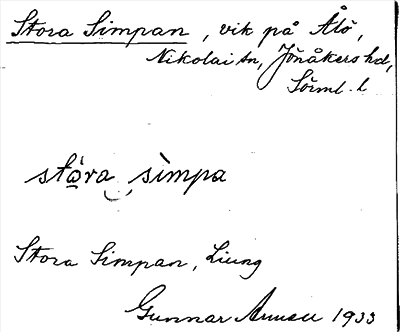 Stora Simpan, vik på Ålö,
Nikolai sn, Jönåkers hd,
Sörml. l
stɷ̀ra sìmpa
Stora Simpan, Ljung
Gunnar 1933